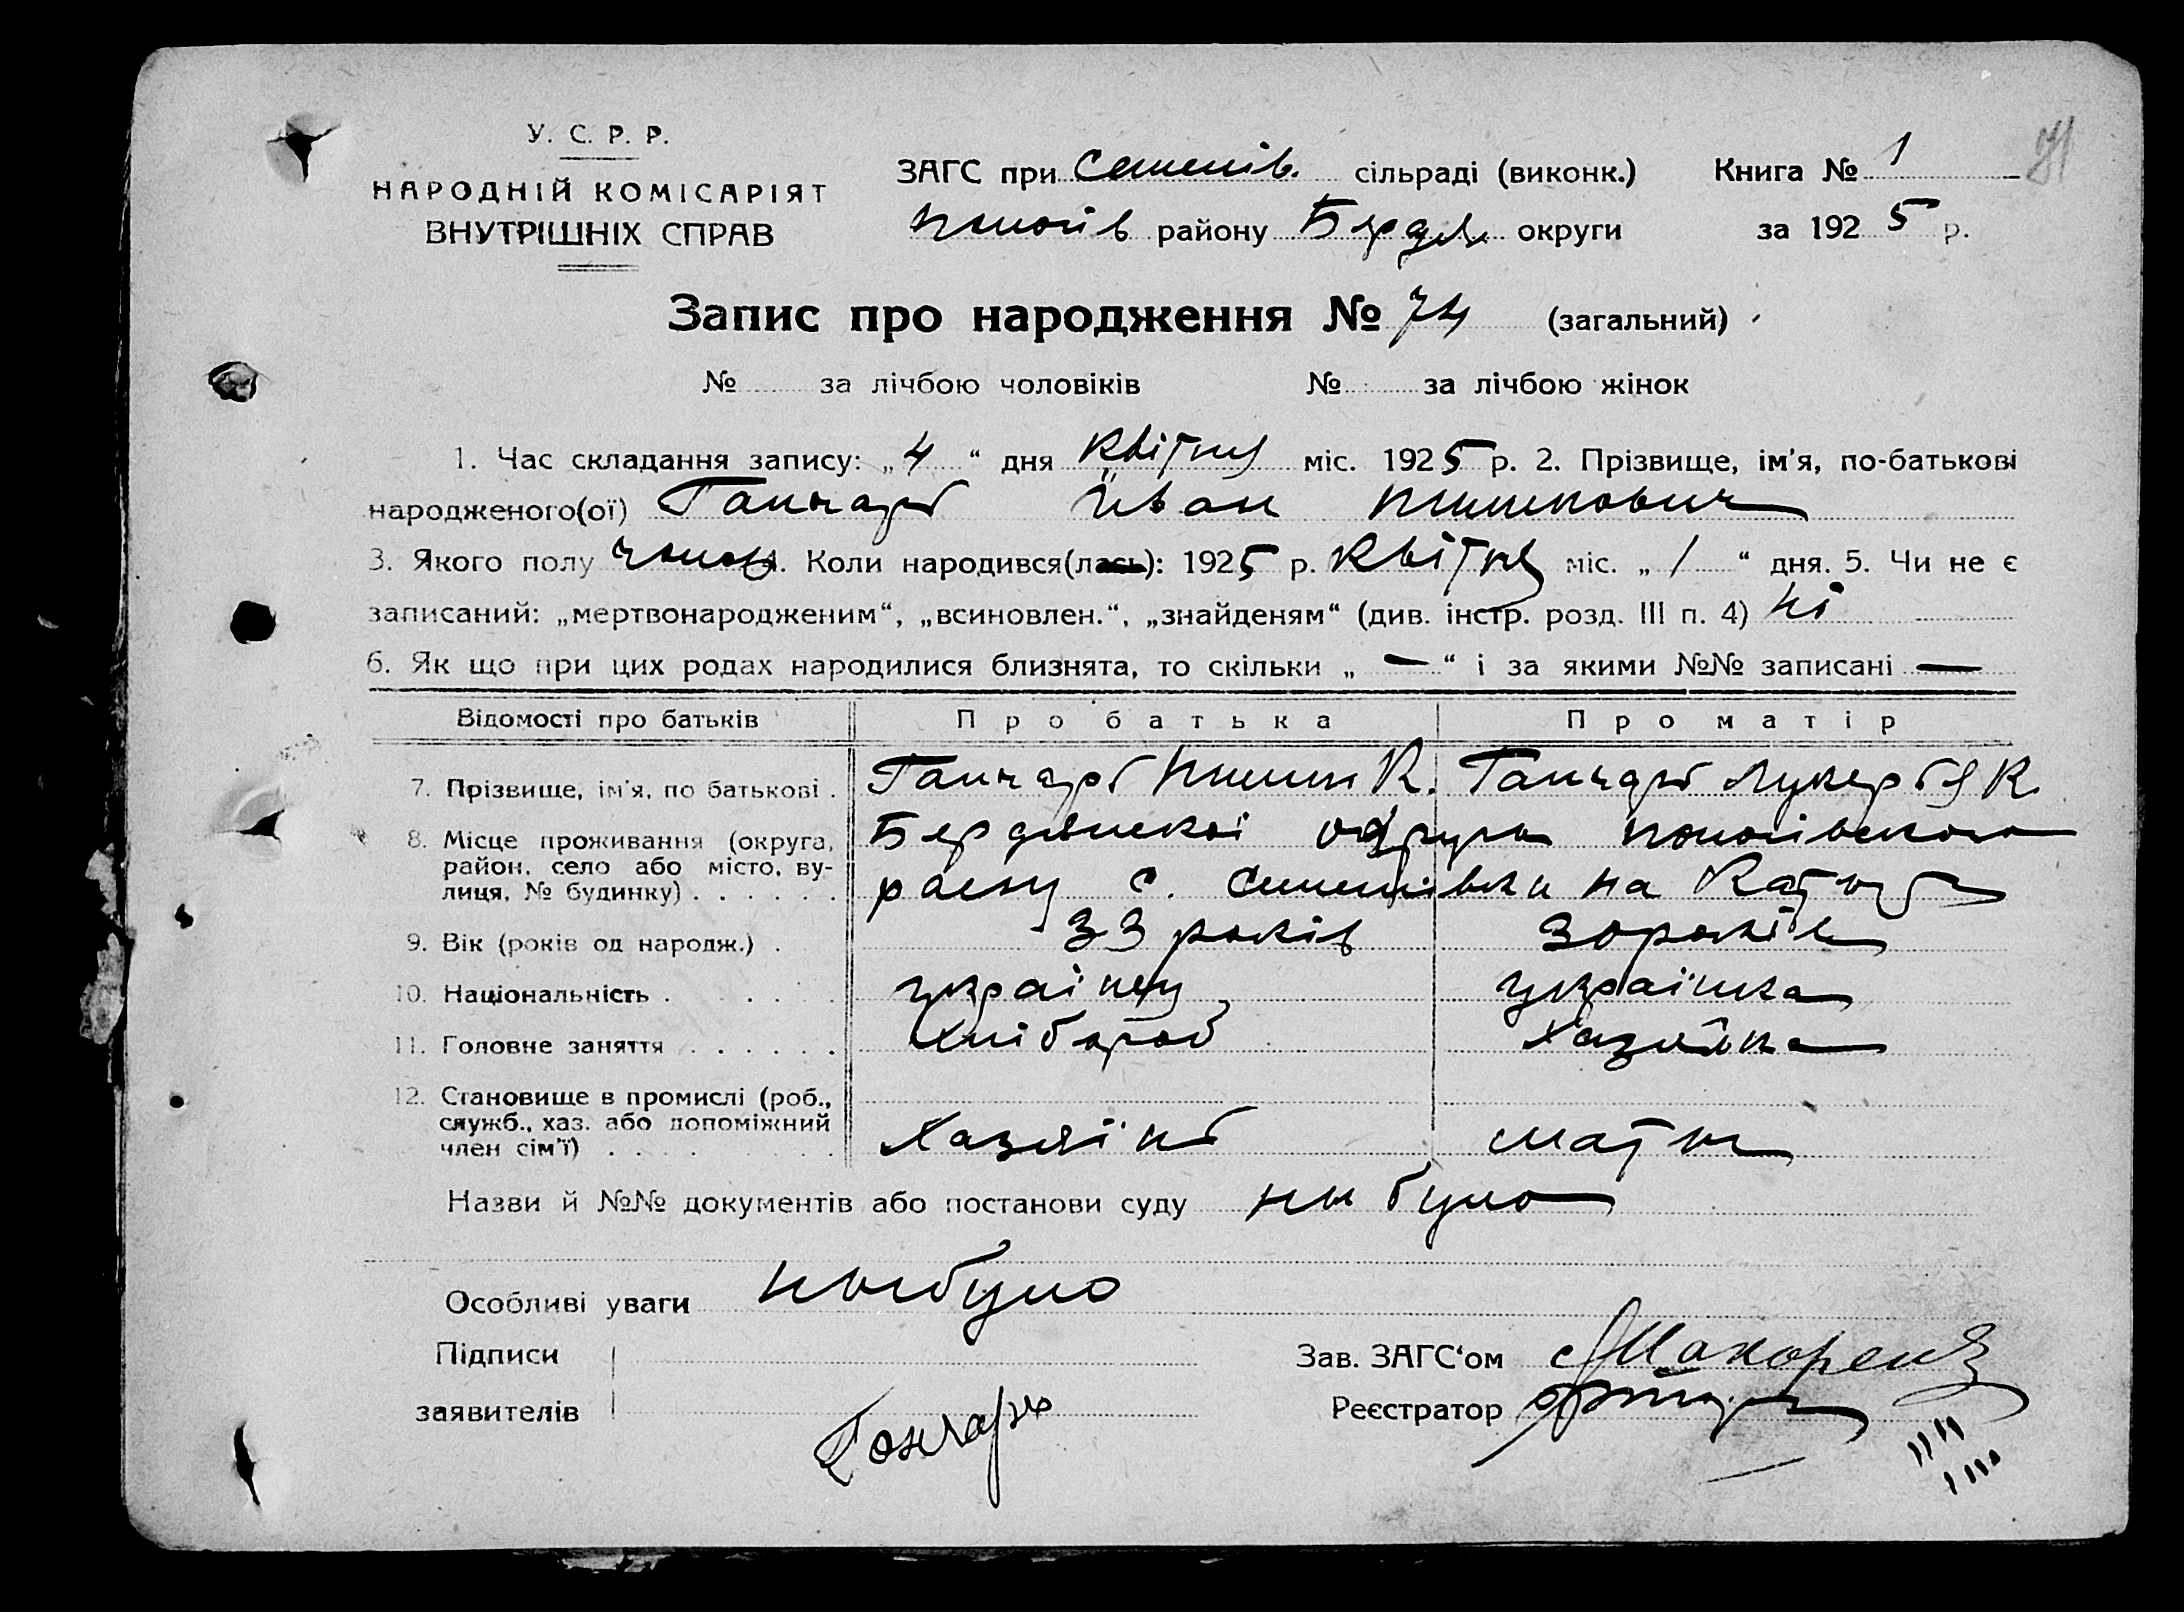 У. С. Р. Р.
НАРОДНІЙ КОМІСАРІЯТ
ВНУТРІШНІХ СПРАВ
ЗАГС при Семенів. сільраді (виконк.) Книга № 1
району Бердян. округи за 1925 р.
Запис про народження № 74 (загальний)
№ за лічбою чоловіків № за лічбою жінок
1. Час складання запису: „4“ дня Квітня міс. 1925 р. 2. Прізвище, ім'я, по-батькові
народженого(ої) Ганчарь Иван
3. Якого полу чолов 4. Коли народився(лась): 1925 р. Квітня міс. „1“ дня. 5. Чи не є
записаний: „мертвонародженим“, „всиновлен.“, „знайденям“ (див. інстр. розд. III п. 4) ні
6. Як що при цих родах народилися близнята, то скільки „ — “ і за якими №№ записані —
Відомості про батьків Про батька Про матір
7. Прізвище, ім'я, по батькові . Ганчарь К. Ганчарь Лукерья К.
8. Місце проживання (округа, район, село або місто, вулиця, № будинку) . . . . . . Бердянскоі округи
с. на
9. Вік (років од народж.) . 33 років 30 років
10. Національність . . . . . украінец украінка
11. Головне заняття . . . . . . Хлібороб Хазяйка
12. Становище в промислі (роб., служб., хаз. або допоміжний член сім'ї) . . . . . Хазяінь мати
Назви й №№ документів або постанови суду ны було
Особливі уваги ныбуло
Підписи Зав. ЗАГС'ом
заявителів Гончарь Реєстратор